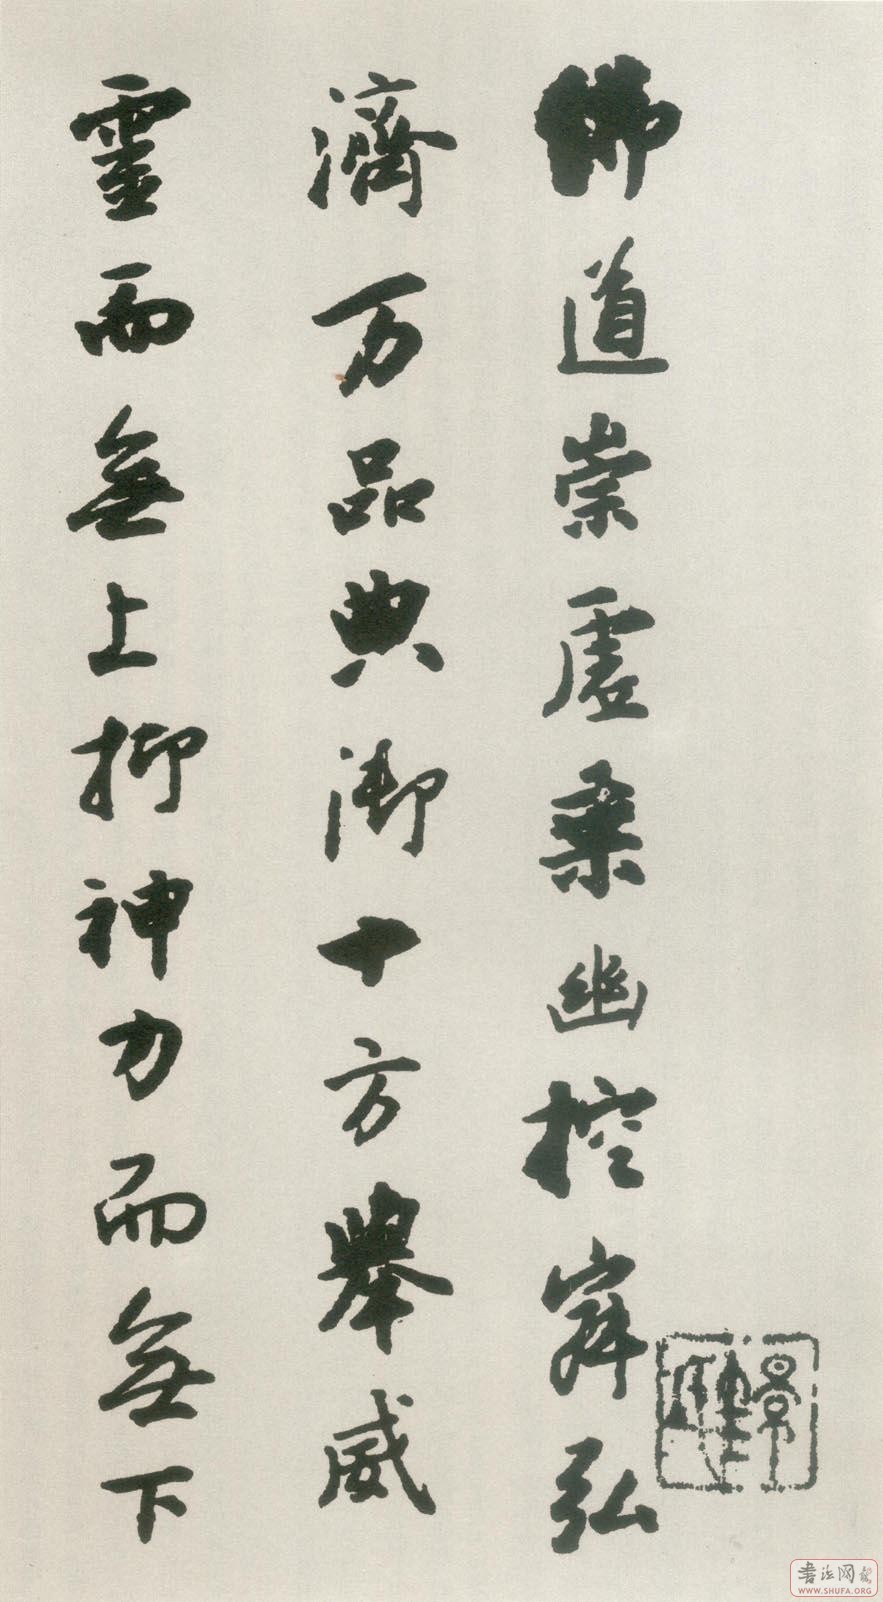 佛道崇虛乘幽控寂弘
濟万品典御十方舉威
靈而無上抑神力而無下
書法网
WWW.SHUFA.ORG